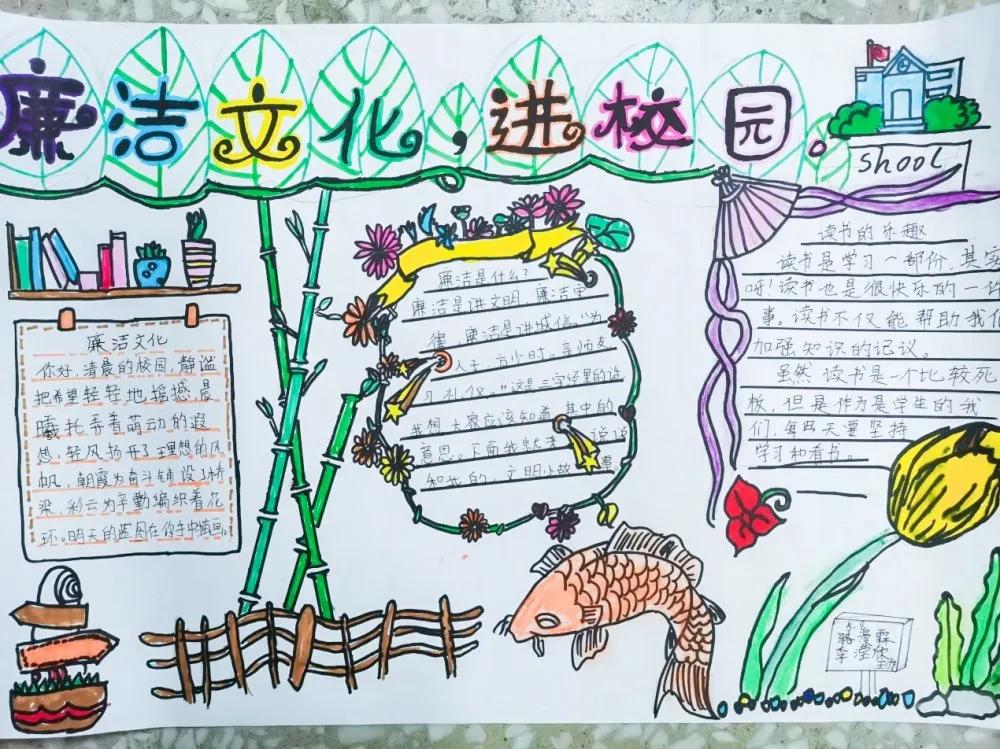 廉洁文化,进校园。
shool
廉洁文化
你好,清晨的校园,静谧
把希望轻轻地摇撼,晨
曦托举着萌动的遐
想,轻风扬开了理想的风
帆,朝霞为奋斗铺设了桥
梁,彩云为辛勤编织着花
环。明天的蓝图在你手中描画。
廉洁是什么?
廉洁是讲文明,廉洁守
律,廉洁是讲诚信。"为
人子,方少时。亲师友,
习礼仪。"这是三字经里的话
我想大家应该知道其中的
意思。下面我就来说说
知我的,文明小故事
读书的乐趣
读书是学习一部份,其实
呀!读书也是很快乐的一件
事。读书不仅能帮助我们
加强知识的记议。
虽然读书是一个比较死
板,但是作为是学生的我
们,每天要坚持
学习和看书。